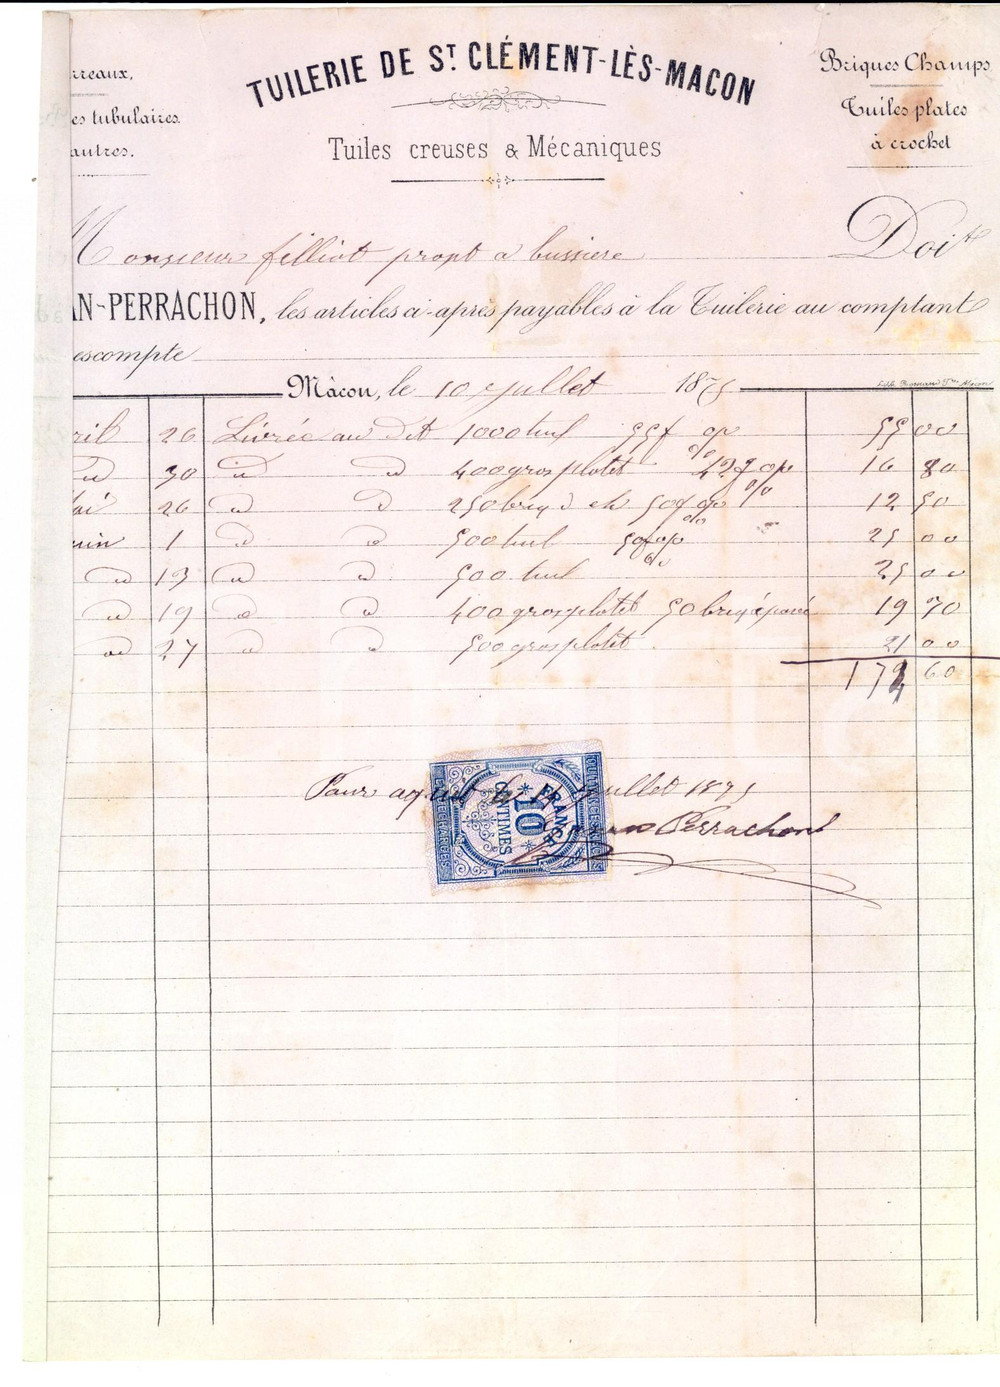 TUILERIE DE ST CLÉMENT-LÈS-MACON
Tuiles creuses & Mécaniques
rreaux,
es tubulaires.
autres.
Briques Champs
Tuiles plates
à crochet
Monsieur filliot propt a bussiere Doit
AN-PERRACHON, les articles ci-après payables à la Tuilerie au comptant
escompte
Mâcon, le 10 Juillet 1875
ril 26 Livrée au dit 1000 tuil 55f op % 55 00
d 30 d d 400 gros plotet 42f op % 16 80
ai 26 d d 250 briq d ch 50f op % 12 50
uin 1 d d 500 tuil 50f op % 25 00
d 13 d d 500 tuil 25 00
d 19 d d 400 gros plotet 50 briq 19 70
d 27 d d 500 gros plotet 21 00
174 60
Pour aquit le Juillet 1875
Perrachon
QUITTANCES REÇUS
10
CENTIMES
FRANCE
ET DÉCHARGES